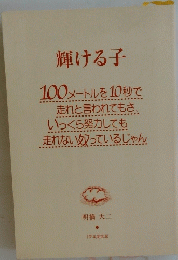 輝ける子
100メートルを10秒で
走れと言われてもさ、
いっくら努力しても
走れない奴っているじゃん
明橋 大二